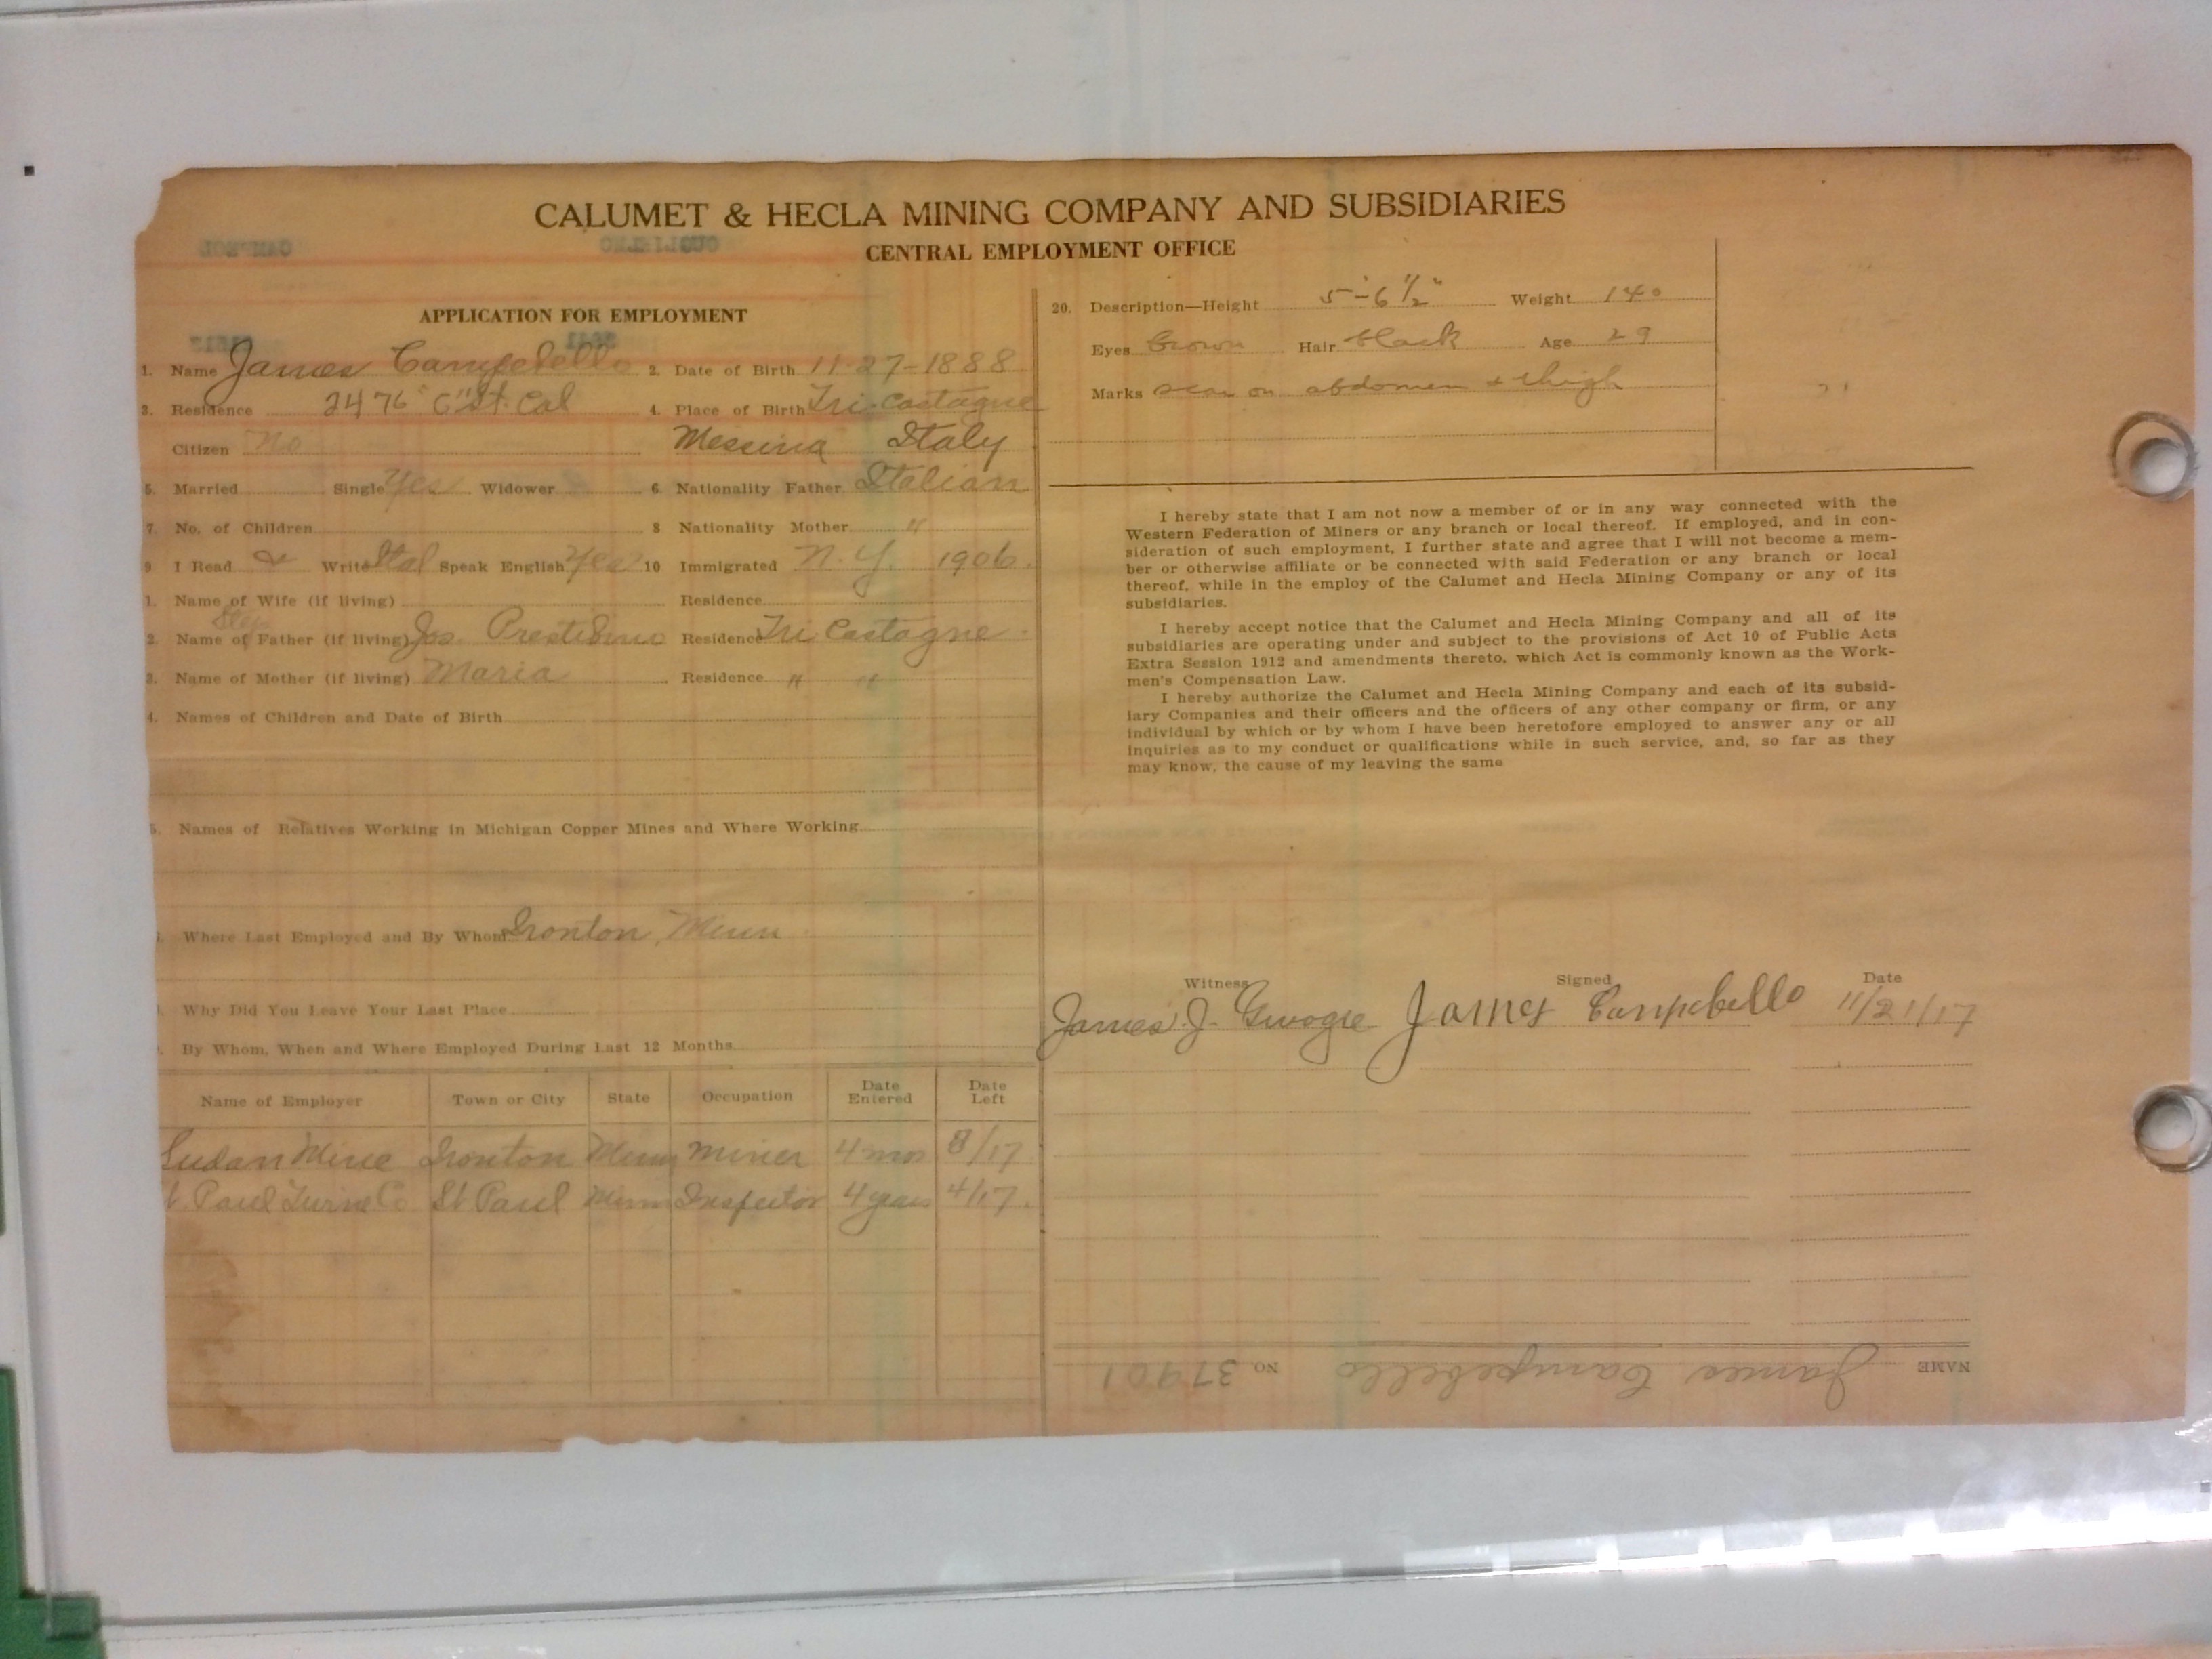 CALUMET & HECLA MINING COMPANY AND SUBSIDIARIES
CENTRAL EMPLOYMENT OFFICE
APPLICATION FOR EMPLOYMENT
1. Name James Campebello 2. Date of Birth 11-27-1888
3. Residence 2476 C St. Cal 4. Place of Birth Tri Castagne
Citizen No Messina Italy
5. Married Single Yes Widower 6. Nationality Father Italian
7. No. of Children 8 Nationality Mother "
9 I Read & Write Ital Speak English Yes 10 Immigrated N.Y. 1906.
1. Name of Wife (if living) Residence
Step
2. Name of Father (if living) Jos. Residence Tri Castagne
3. Name of Mother (if living) Maria Residence " "
4. Names of Children and Date of Birth
5. Names of Relatives Working in Michigan Copper Mines and Where Working
Where Last Employed and By Whom Ironton, Minn
Why Did You Leave Your Last Place
By Whom, When and Where Employed During Last 12 Months
Name of Employer Town or City State Occupation Date Entered Date Left
Mine Ironton Minn Miner 4 mos 8/17
t. Paul Co St Paul Minn Inspector 4 years 4/17.
20. Description—Height 5'-6 1/2" Weight 140
Eyes Brown Hair black Age 29
Marks scar on abdomen & thigh
I hereby state that I am not now a member of or in any way connected with the
Western Federation of Miners or any branch or local thereof. If employed, and in con-
sideration of such employment, I further state and agree that I will not become a mem-
ber or otherwise affiliate or be connected with said Federation or any branch or local
thereof, while in the employ of the Calumet and Hecla Mining Company or any of its
subsidiaries.
I hereby accept notice that the Calumet and Hecla Mining Company and all of its
subsidiaries are operating under and subject to the provisions of Act 10 of Public Acts
Extra Session 1912 and amendments thereto, which Act is commonly known as the Work-
men's Compensation Law.
I hereby authorize the Calumet and Hecla Mining Company and each of its subsid-
iary Companies and their officers and the officers of any other company or firm, or any
individual by which or by whom I have been heretofore employed to answer any or all
inquiries as to my conduct or qualifications while in such service, and, so far as they
may know, the cause of my leaving the same
Witness Signed Date
James J. James Campebello 11/21/17
NAME James Campebello NO. 37401